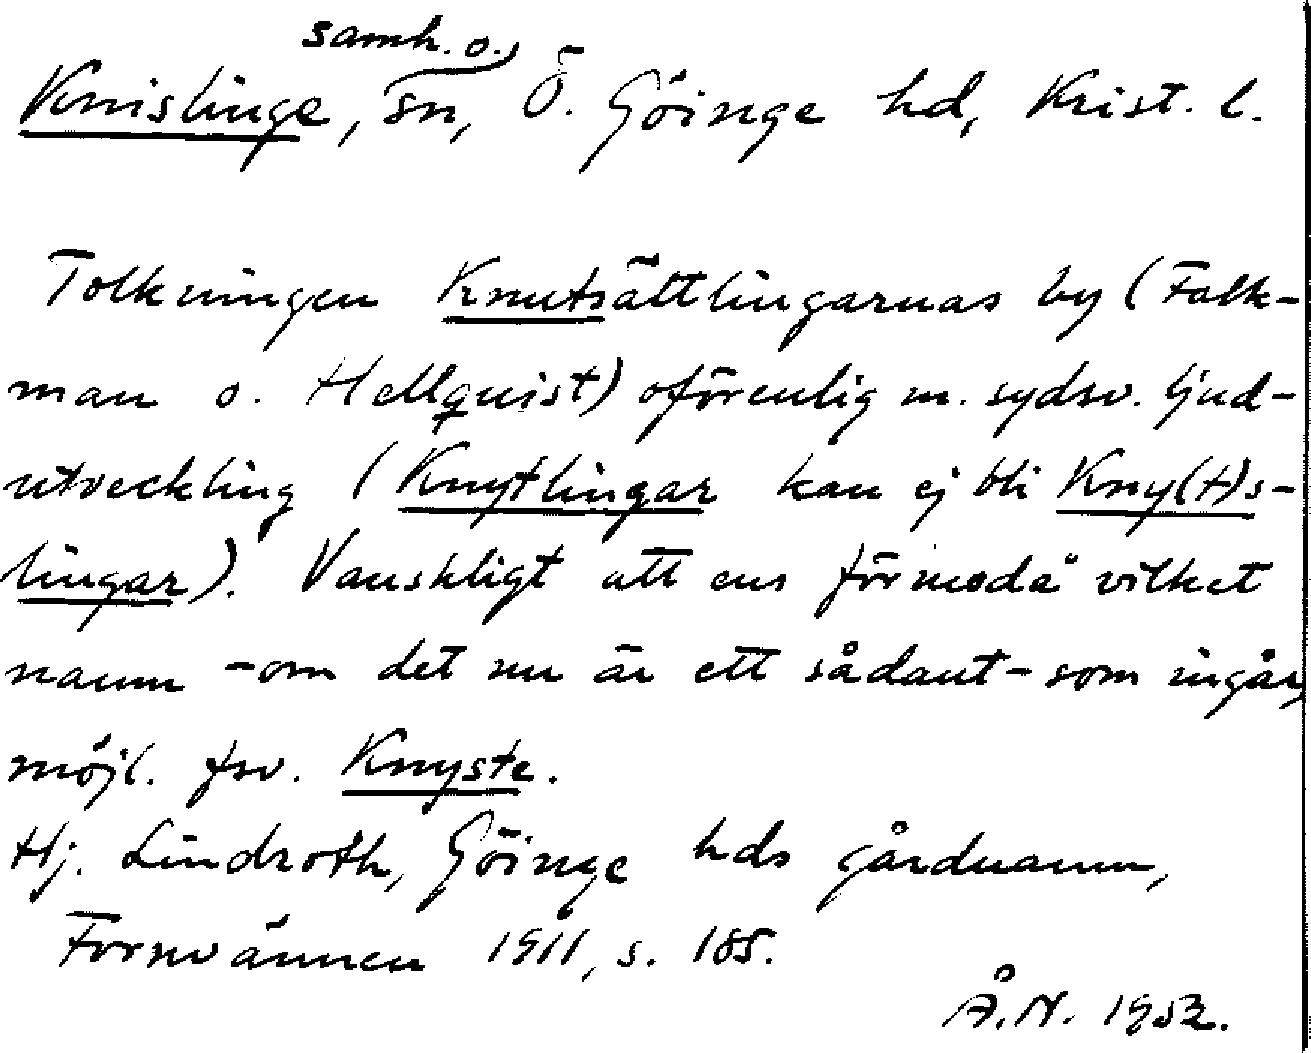 samh. o.
Knislinge, sn, Ö. Göinge hd, Krist. l.
Tolkningen Knutsättlingarnas by (Falk-
man o. Hellquist) oförenlig m. sydsv. ljud-
utveckling (Knytlingar kan ej bli Kny(t)s-
lingar). Vanskligt att ens förmoda vilket
namn - om det nu är ett sådant - som ingår,
möjl. fsv. Knyste.
Hj. Lindroth, Göinge hds gårdnamn,
Fornvännen 1911, s. 185.
Å.N. 1952.